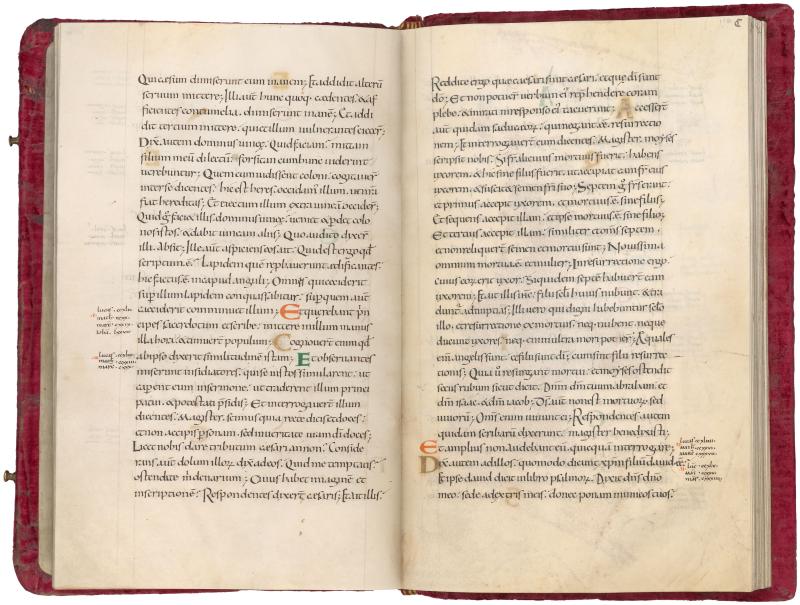 Qui cæsum dimiserunt eum inanem; Et addidit alterū
seruum mittere; Illi aut̄ hunc quoq· cædentes. & af
ficientes contumelia. dimiserunt inanē; Et addi
dit tertium mittere. qui et illum uulnerantes eiecer̄;
Dix̄ autem dominus uineę; Quid faciam? mittam
filium meū dilectū. forsitan cum hunc uiderint
uerebuntur; Quem cum uidissent coloni. cogitauer̄
inter se dicentes. hic est heres. occidamus illum. ut nr̄a
fiat hereditas; Et eiectum illum extra uineā occider̄;
Quid g̊ faciet illis dominus uineę? ueniet et perdet colo
nos istos. & dabit uineam aliis; Quo audito dixer̄
illi. Absit; Ille aut̄ aspiciens eos ait. Quid est ergo qđ
scriptum ē. Lapidem quē reprobauerunt ædificantes.
hic factus ē. in caput anguli; Omnis qui ceciderit
sup̄ illum lapidem conquassabitur. supra quem aut̄
ceciderit comminuet illum; Et querebant prin
cipes sacerdotum et scribę. mittere in illum manus
illa hora. et timuer̄ populum; Cognouer̄ enim qđ
ab ipso dixerit similitudinē istam; Et obseruantes
miserunt insidiatores. qui se iustos simularent. ut
caperent eum in sermone. ut traderent illum princi
patui. & potestati præsidis; Et interrogauer̄ illum
dicentes. Magister. scimus quia recte dicis et doces;
et non accipis personam. sed in ueritate uiam dī doces;
Licet nobis dare tributum cæsari an non? Conside
rans aut̄ dolum illorū dix̄ ad eos; Quid me temptatis?
ostendite m̄ denarium; Cuius habet imaginē et
inscriptionē? Respondentes dixer̄ cæsaris; Et ait illis.
Reddite ergo quæ cæsaris sunt cæsari. et quę dī sunt
dō; Et non potuer̄ uerbum eius repr̄hendere coram
plebe. & mirati in responso eius tacuerunt; Accesser̄
aut̄ quidam sadducæorū. qui negant esse resurrectio
nem; Et interrogauer̄ eum dicentes; Magister. moyses
scripsit nobis. Si frater alicuius mortuus fuerit. habens
uxorem. & hic sine filiis fuerit. ut accipiat eam frater eius
uxorem. & suscitet semen fratri suo; Septem g̊ frs̄ erant.
et primus accepit uxorem. et mortuus ē. sine filiis;
Et sequens accepit illam. et ipse mortuus ē. sine filio;
Et tertius accepit illam. similiter et omnes septem.
et non reliquer̄ semen et mortui sunt; Nouissima
omnium mortua ē. et mulier; In resurrectione ergo.
cuius eorū erit uxor? Siquidem septē habuer̄ eam
uxorem; Et ait illis iħs̄. filii sc̄li huius nubunt. & tra
duntur ad nuptias; Illi uero qui digni habebuntur sc̄lo
illo. et resurrectione ex mortuis. neq· nubent. neque
ducunt uxores. neq· enim ultra mori poterunt; Æquales
enī angelis sunt. et filii sunt dī. cum sint filii resurrec
tionis; Quia u̅ resurgant mortui. et moyses ostendit
secus rubum sicut dicit. Dn̄m dm̄ abraham. et
dm̄ isaac. & dm̄ iacob; Ds̄ aut̄ non est mortuorū sed
uiuorū; Om̄s enim uiuunt ei; Respondentes autem
quidam scribarū dixerunt. magister bene dixisti;
Et amplius non audebant eū quicquā interrogare;
Dix̄ autem ad illos. quomodo dicunt xp̄m filiū dauid eē?
Et ipse dauid dicit in libro psalmorū. Dixit dn̄s dn̄o
meo. sede a dextris meis. donec ponam inimicos tuos.